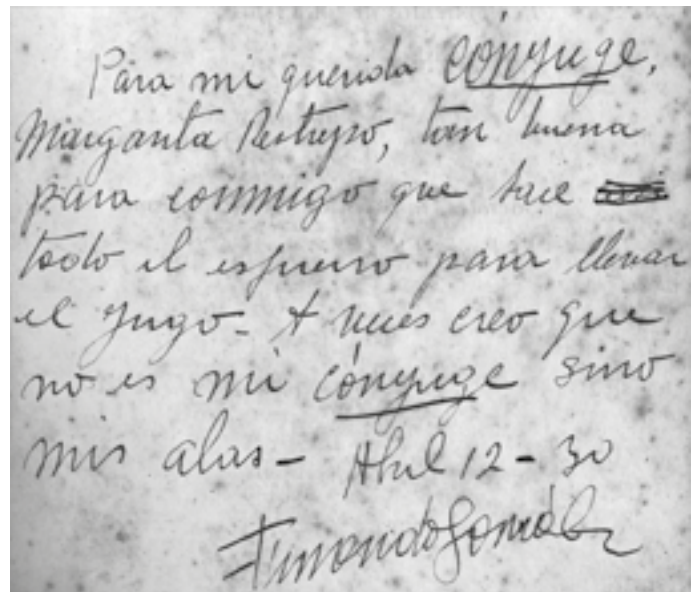 Para mi querida cónyuge,
Margarita Restrepo, tan buena
para conmigo que hace
todo el esfuerzo para llevar
el yugo. A veces creo que
no es mi cónyuge sino
mis alas – Abril 12 – 30
Fernando González